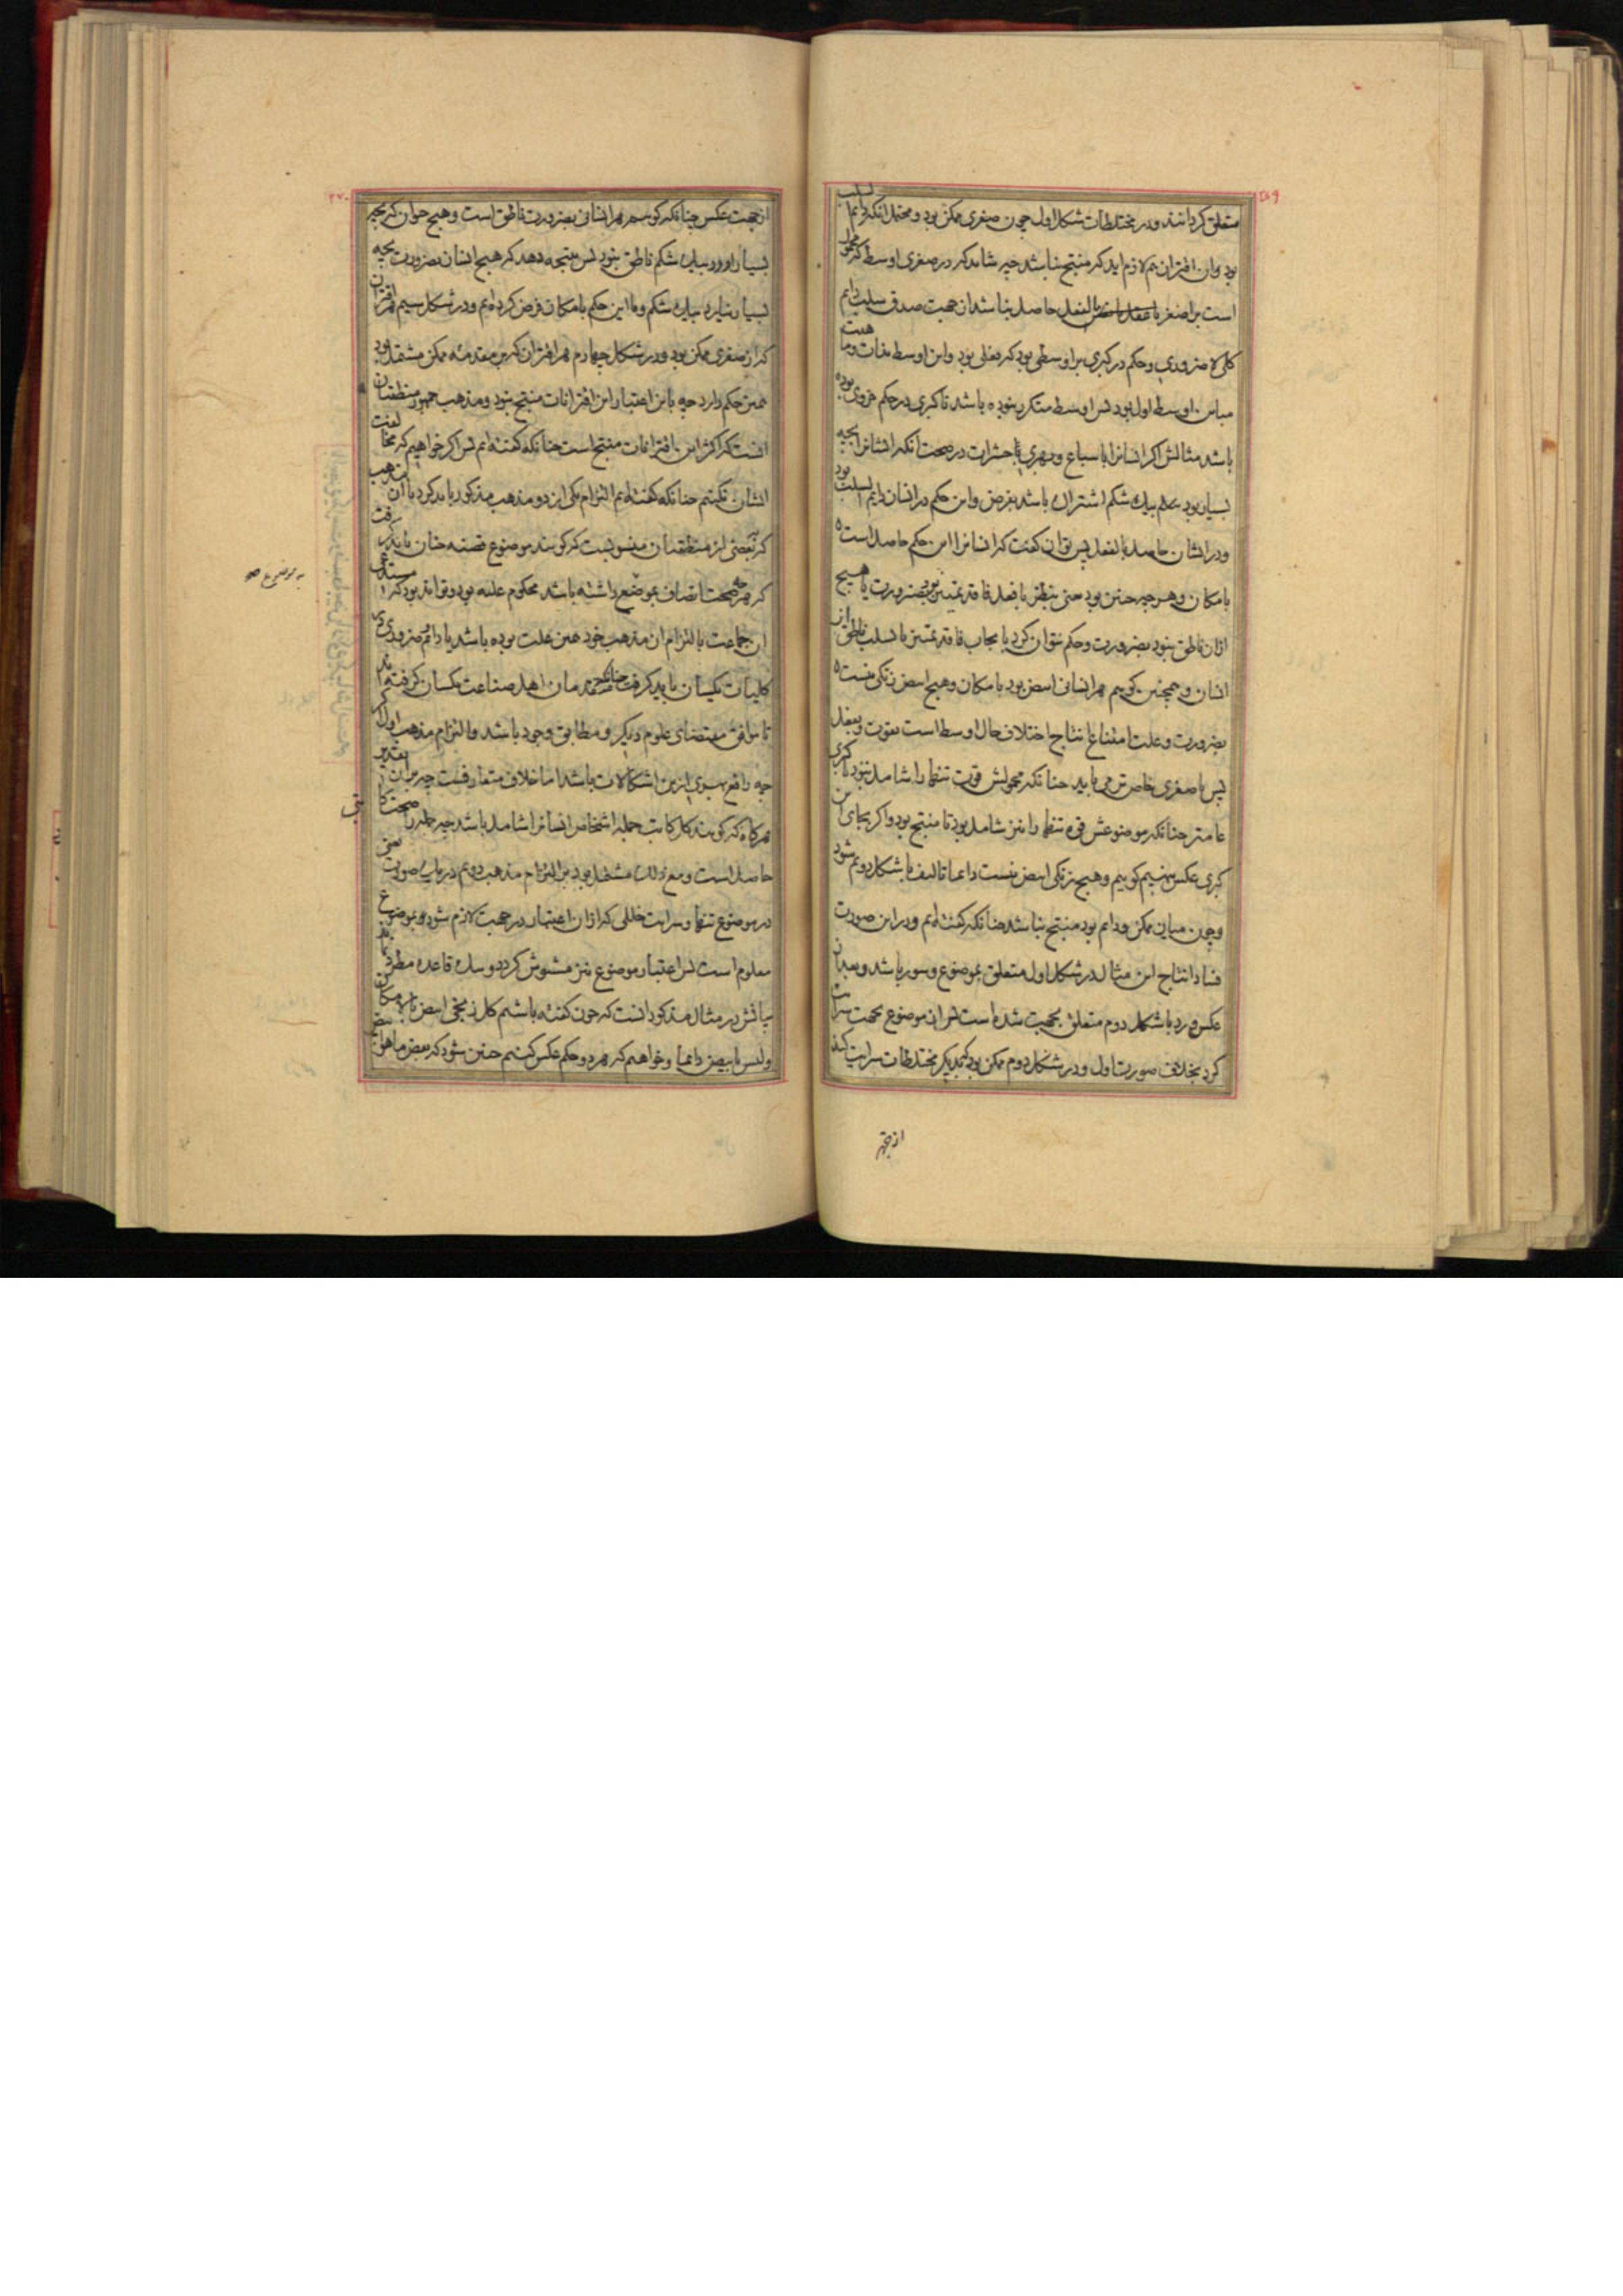 ۲۱۹
متعلق کردانند و در مختلطات شکل اول چون صغری ممکن بود و محتمل انکه دایم السلب
بود وان اقتران هم لازم اید که منتج نباشد چه شاید که در صغری اوسط که محمول
است بر اصغر بالفعل حاصل نباشد از جهت صدق سلب دایم
کلی لا ضروری و حکم در کبری بر اوسطی بود که بفعلی بود و این اوسط بذات و ماهیت
مباین اوسط اول بود پس اوسط متکرر نبوده باشد تا کبری در حکم جزوی بود
باشد مثالش اکر انسانرا با سباع و بهری با حشرات در صحت انکه ایشانرا بچه
بسیار بود بیک شکم اشتراک باشد بفرض و این حکم در انسان دایم السلب بود
و در ایشان حاصل بالفعل پس توان کفت که انسانرا این حکم حاصل است
بامکان و هر چه چنین بود بضرورت یا هیچ
ازان ناطق نبود بضرورت و حکم نتوان کرد بایجاب یا بسلب ناطق از
انسان و همچنین کوییم هر انسانی ابیض بود بامکان و هیچ ابیض زنکی نیست
بضرورت و علت امتناع انتاج اختلاف حال اوسط است بقوت و بفعل
پس یا صغری خاص تر می باید چنانکه محمولش قوت تنها را شامل نبود یا کبری
عامتر چنانکه موضوعش قوه تنها را نیز شامل بود تا منتج بود و اکر بجای این
کبری عکس نهیم کوییم و هیچ زنکی ابیض نیست دایما تالیف با شکل دوم شود
و چون میان ممکن و دایم بود منتج نباشد چنانکه کفته ایم و در این صورت
فساد انتاج این مثال در شکل اول متعلق بموضوع و سور باشد و بعد از
عکس و رد با شکل دوم متعلق بجهت شده است پس ان موضوع بجهت سرایت
کرد بخلاف صورت اول و در شکل دوم ممکن بود که بدیکر مختلطات سرایت کند
از جهة
۲۲۰
از جهت عکس چنانکه کوییم هر انسانی بضرورت ناطق است و هیچ حیوان که بچه
بسیار اورد بیک شکم ناطق نبود پس نتیجه دهد که هیچ انسان بضرورت بچه
بسیار نیارد بیک شکم و ما این حکم بامکان فرض کرده ایم و در شکل سیم هر اقتران
که از صغری ممکن بود و در شکل چهارم هر اقتران که بر مقدمه ممکن مشتمل بود
همین حکم دارد چه باین اعتبار این اقترانات منتج نبود و مذهب جمهور منطقیان
انست که اکثر این اقترانات منتج است چنانکه کفته ایم پس اکر خواهیم که مخالفت
ایشان نکنیم چنانکه کفته ایم التزام یکی ازین دو مذهب مذکور باید کرد یا ان مذهب
که ببعضی از منطقیان منسوبست که کویند موضوع قضیه چنان باید کرفت
که هر چه صحت اتصاف بموضع داشته باشد محکوم علیه بود و تواند بود که مستدعی
ان جماعت بالتزام ان مذهب خود همین علت بوده باشد یا دایم و ضروری در
کلیات یکسان باید کرفت چنانکه متقدمان اهل صناعت یکسان کرفته اند
تا موافق مقتضای علوم دیکر و مطابق وجود باشد و التزام مذهب اول اکر
چه دافع بسیاری ازین اشکالات باشد اما خلاف متعارفست چه بران تقدیر
هرکاه که کویند کل کاتب جمله اشخاص انسانرا شامل باشد چه جمله را صحت کتا
بتی
حاصل است و مع ذلک مشتمل بود بر التزام مذهب دوم دریک صورت یعنی
در موضوع تنها و سرایت خللی که ازان اعتبار در جهت لازم شود بموضوع
به موضوع
معلوم است پس اعتبار موضوع نیز مشوش کردد و سلک قاعده مطرد نماند
بیانش در مثال مذکور انست که چون کفته باشیم کل زنجی ابیض بالامکان
ولیس بابیض دایما و خواهیم که هر دو حکم عکس کنیم چنین شود که بعض ما هو ابیض